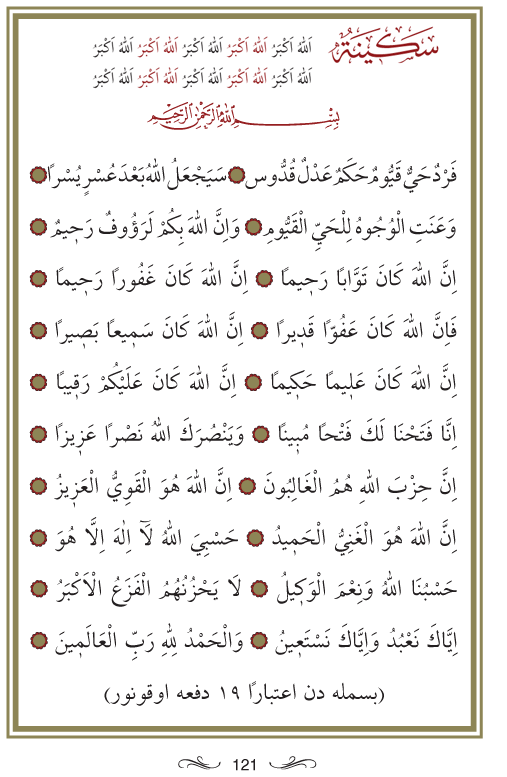 سَكٖينَةٌ
اَللّٰهُ اَكْبَرُ اَللّٰهُ اَكْبَرُ اَللّٰهُ اَكْبَرُ اَللّٰهُ اَكْبَرُ اَللّٰهُ اَكْبَرُ
اَللّٰهُ اَكْبَرُ اَللّٰهُ اَكْبَرُ اَللّٰهُ اَكْبَرُ اَللّٰهُ اَكْبَرُ اَللّٰهُ اَكْبَرُ
بِسْمِ اللّٰهِ الرَّحْمٰنِ الرَّحٖيمِ
فَرْدٌ حَىٌّ قَيُّومٌ حَكَمٌ عَدْلٌ قُدُّوس ۞ سَيَجْعَلُ اللّٰهُ بَعْدَ عُسْرٍ يُسْرًا ۞
وَعَنَتِ الْوُجُوهُ لِلْحَيِّ الْقَيُّومِ ۞ وَاِنَّ اللّٰهَ بِكُمْ لَرَؤُوفٌ رَحٖيمٌ ۞
اِنَّ اللّٰهَ كَانَ تَوَّابًا رَحٖيمًا ۞ اِنَّ اللّٰهَ كَانَ غَفُورًا رَحٖيمًا ۞
فَاِنَّ اللّٰهَ كَانَ عَفُوًّا قَدٖيرًا ۞ اِنَّ اللّٰهَ كَانَ سَمٖيعًا بَصٖيرًا ۞
اِنَّ اللّٰهَ كَانَ عَلٖيمًا حَكٖيمًا ۞ اِنَّ اللّٰهَ كَانَ عَلَيْكُمْ رَقٖيبًا ۞
اِنَّا فَتَحْنَا لَكَ فَتْحًا مُبٖينًا ۞ وَيَنْصُرَكَ اللّٰهُ نَصْرًا عَزٖيزًا ۞
اِنَّ حِزْبَ اللّٰهِ هُمُ الْغَالِبُونَ ۞ اِنَّ اللّٰهَ هُوَ الْقَوِيُّ الْعَزٖيزُ ۞
اِنَّ اللّٰهَ هُوَ الْغَنِيُّ الْحَمٖيدُ ۞ حَسْبِيَ اللّٰهُ لَٓا اِلٰهَ اِلَّا هُوَ ۞
حَسْبُنَا اللّٰهُ وَنِعْمَ الْوَكٖيلُ ۞ لَا يَحْزُنُهُمُ الْفَزَعُ الْاَكْبَرُ ۞
اِيَّاكَ نَعْبُدُ وَاِيَّاكَ نَسْتَعٖينُ ۞ وَالْحَمْدُ لِلّٰهِ رَبِّ الْعَالَمٖينَ ۞
(بسمله دن اعتبارًا ١٩ دفعه اوقونور)
121